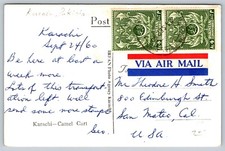 Post
Karachi
Sept 24/60
Be here at least a
week more
Lots of the transport
down left will
send some more stamps
Geo.
Karachi – Camel Cart
VIA AIR MAIL
Mr Theodore H Smith
800 Edinburgh St
San Mateo, Cal
USA